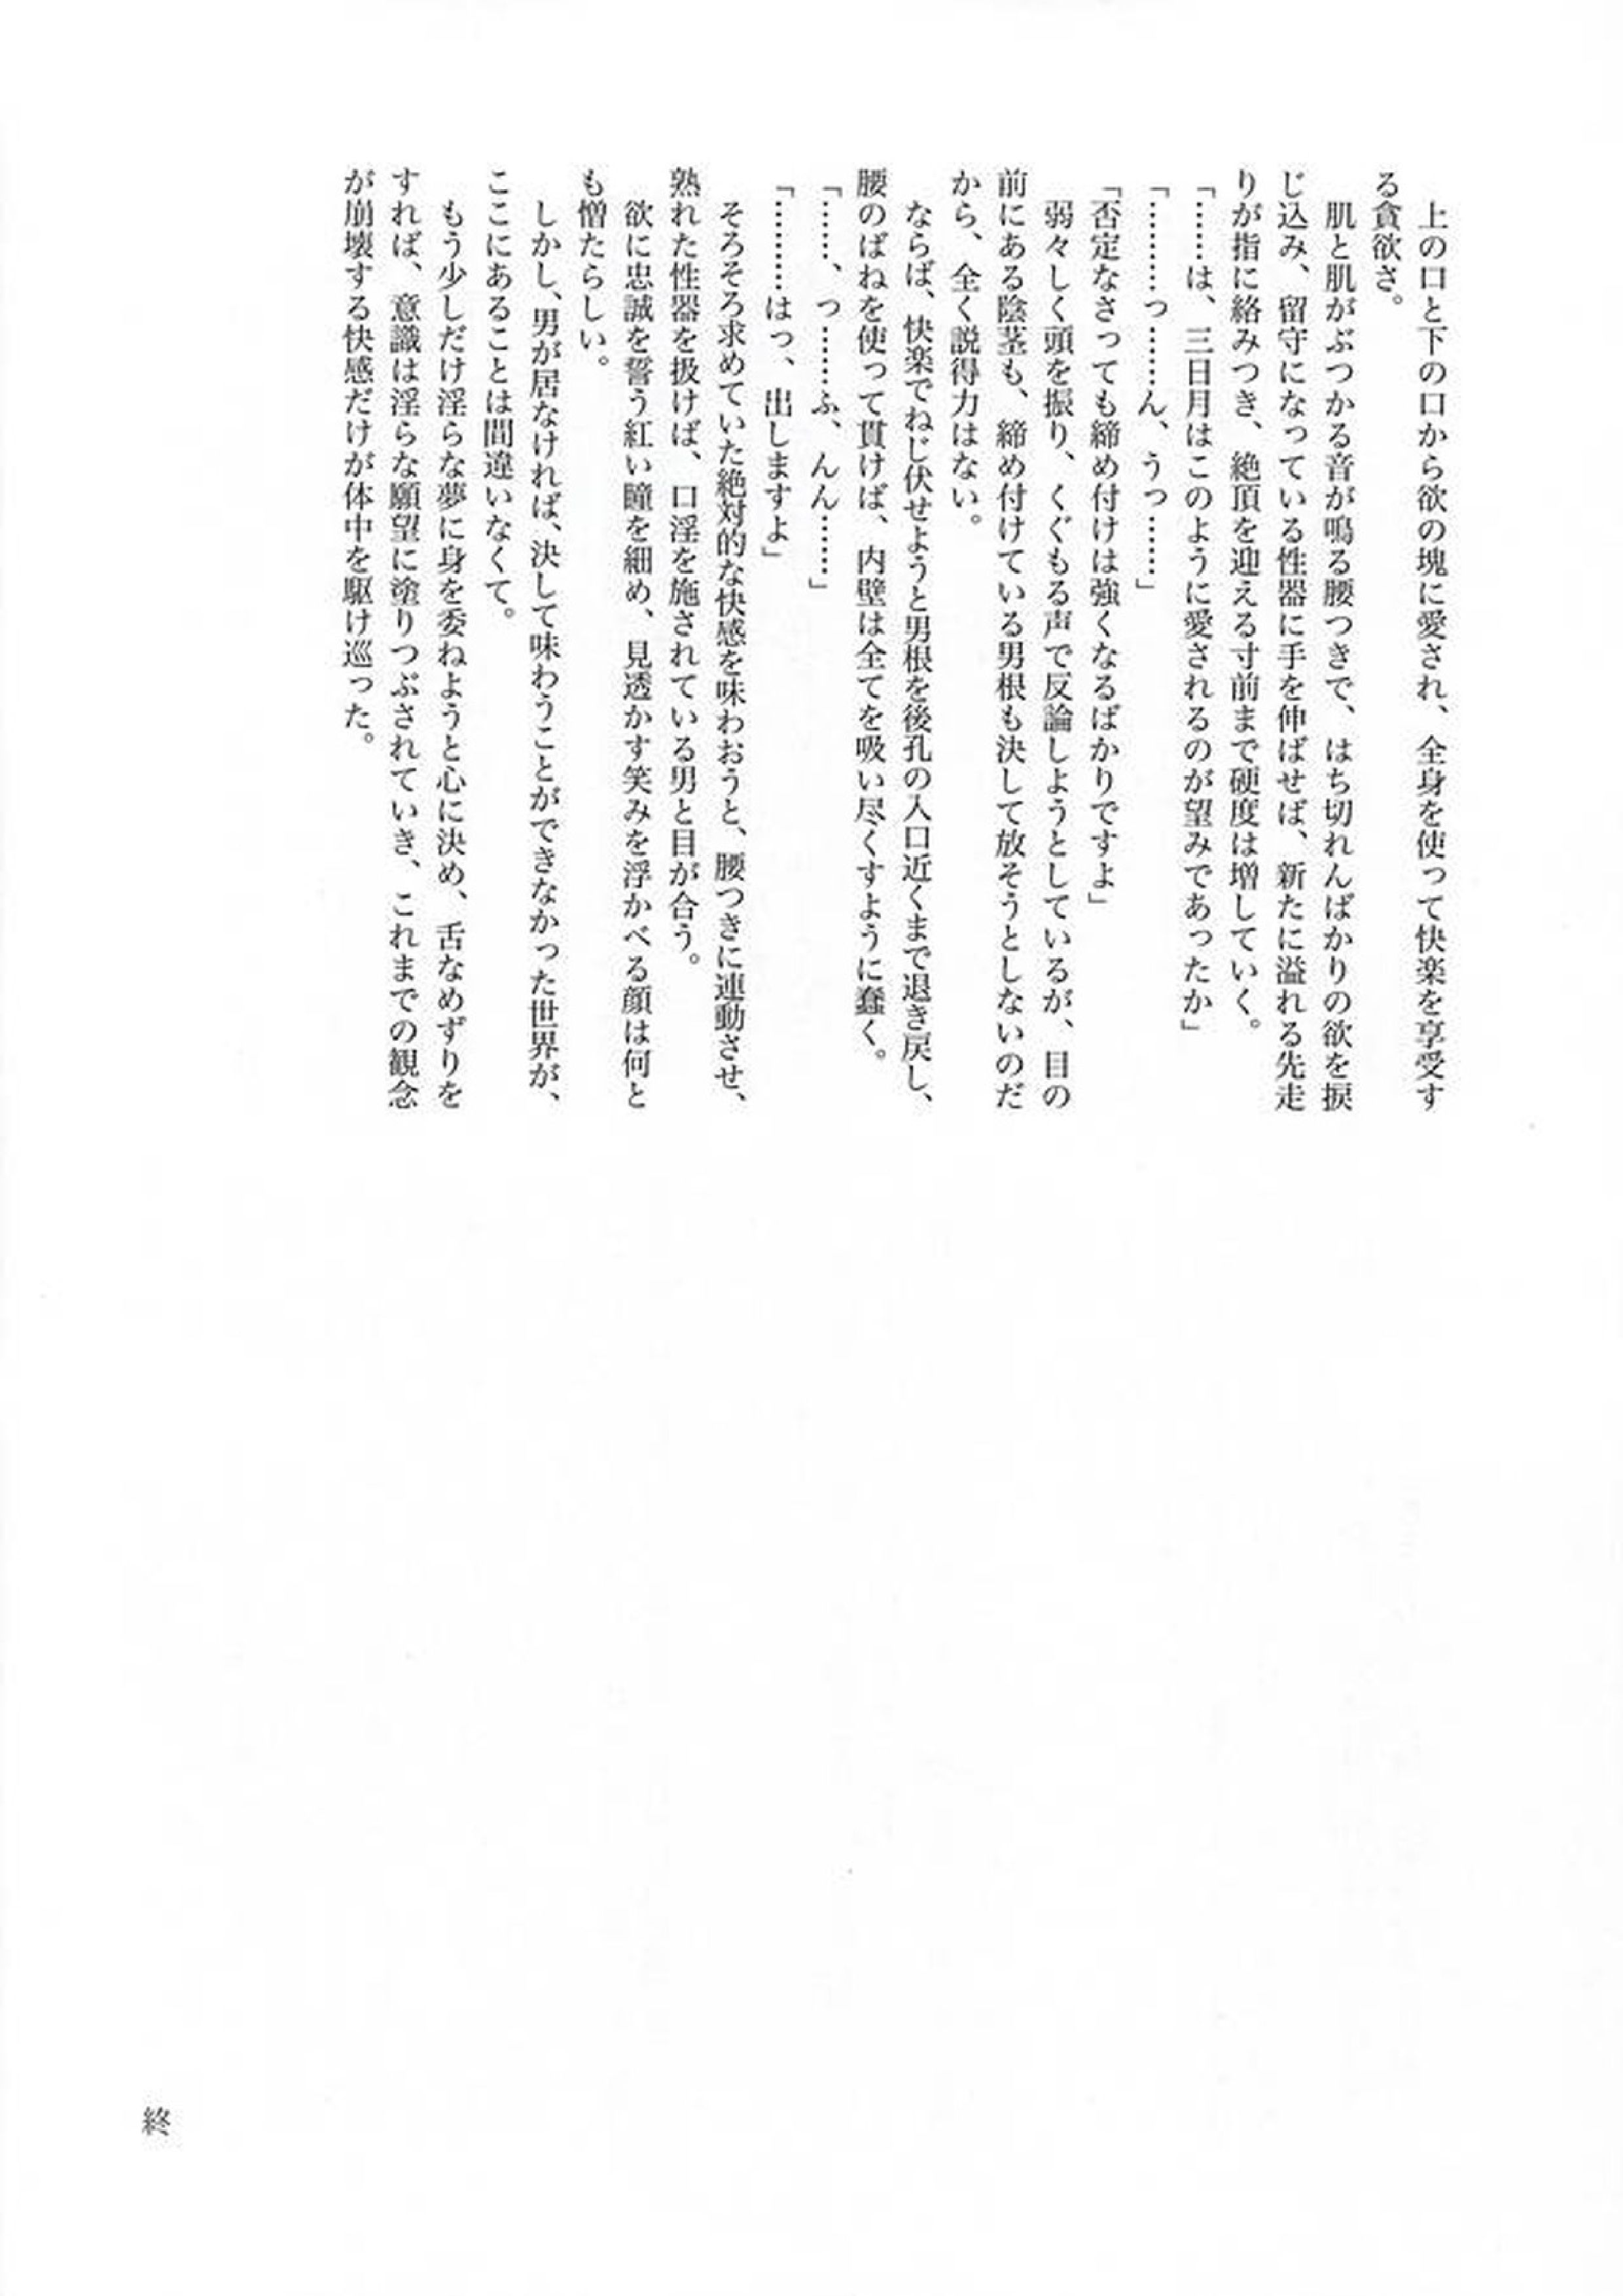 上の口と下の口から欲の塊に愛され、全身を使って快楽を享受す
る貪欲さ。
　肌と肌がぶつかる音が鳴る腰つきで、はち切れんばかりの欲を捩
じ込み、留守になっている性器に手を伸ばせば、新たに溢れる先走
りが指に絡みつき、絶頂を迎える寸前まで硬度は増していく。
「……は、三日月はこのように愛されるのが望みであったか」
「………っ……ん、うっ……」
「否定なさっても締め付けは強くなるばかりですよ」
　弱々しく頭を振り、くぐもる声で反論しようとしているが、目の
前にある陰茎も、締め付けている男根も決して放そうとしないのだ
から、全く説得力はない。
　ならば、快楽でねじ伏せようと男根を後孔の入口近くまで退き戻し、
腰のばねを使って貫けば、内壁は全てを吸い尽くすように蠢く。
「……、っ……ふ、んん……」
「………はっ、出しますよ」
　そろそろ求めていた絶対的な快感を味わおうと、腰つきに連動させ、
熟れた性器を扱けば、口淫を施されている男と目が合う。
　欲に忠誠を誓う紅い瞳を細め、見透かす笑みを浮かべる顔は何と
も憎たらしい。
　しかし、男が居なければ、決して味わうことができなかった世界が、
ここにあることは間違いなくて。
　もう少しだけ淫らな夢に身を委ねようと心に決め、舌なめずりを
すれば、意識は淫らな願望に塗りつぶされていき、これまでの観念
が崩壊する快感だけが体中を駆け巡った。
終